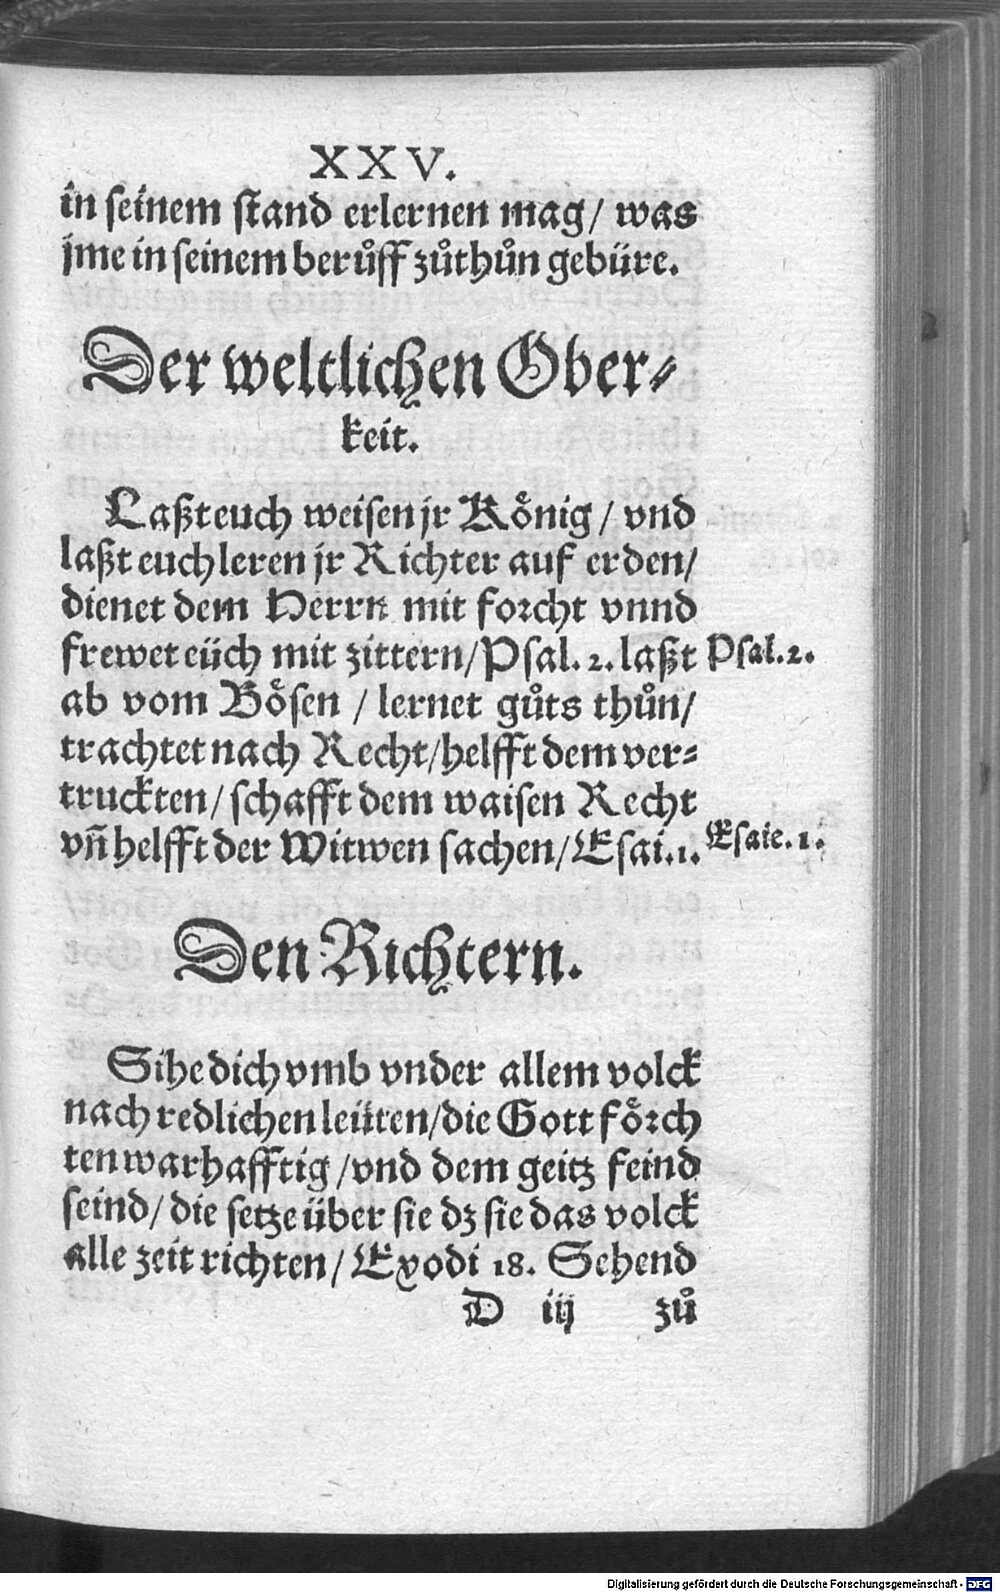 XXV.
in seinem stand erlernen mag/ was
jme in seinem berůff zůthůn gebüre.
Der weltlichen Ober⸗
keit.
Laßt euch weisen jr Kǒnig/ vnd
laßt euch leren jr Richter auf erden/
dienet dem Herrn mit forcht vnnd
frewet eüch mit zittern/ Psal. 2. laßt
Psal. 2.
ab vom Bösen / lernet gůts thůn/
trachtet nach Recht/ helfft dem ver⸗
truckten/ schafft dem waisen Recht
vñ helfft der Witwen sachen/ Esai. 1.
Esaie. 1.
Den Richtern.
Sihe dich vmb vnder allem volck
nach redlichen leüten/ die Gott förch
ten warhafftig/ vnd dem geitz feind
seind/ die setze über sie dz sie das volck
alle zeit richten/ Exodi 18. Sehend
D iij zů
Digitalisierung gefördert durch die Deutsche Forschungsgemeinschaft - DFG